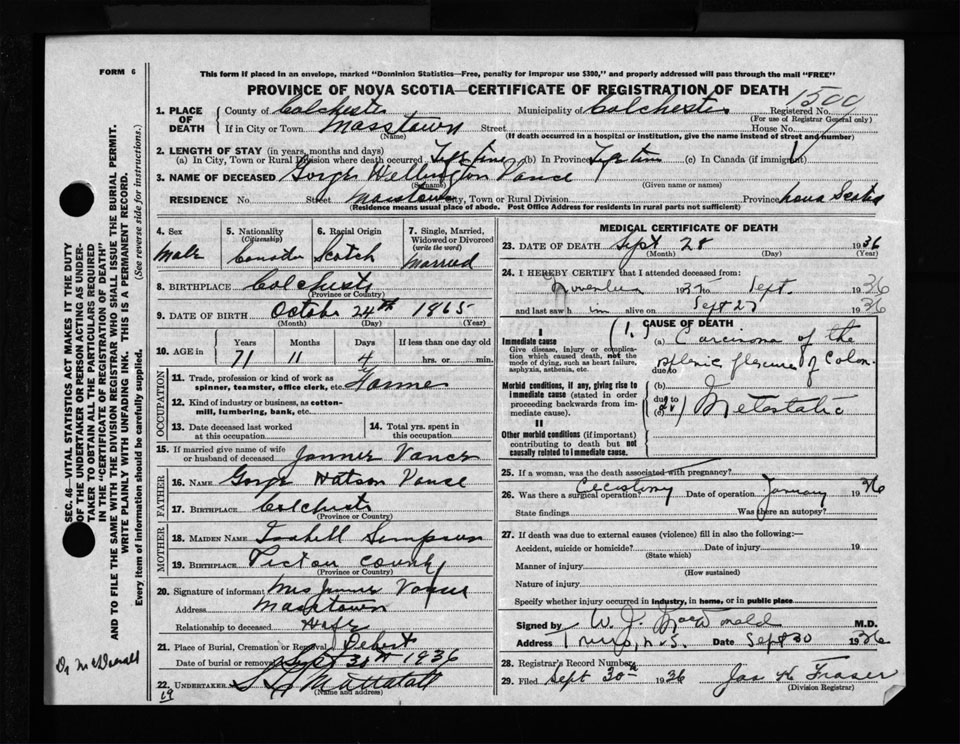 FORM 6
This form if placed in an envelope, marked "Dominion Statistics—Free, penalty for improper use $300," and properly addressed will pass through the mail "FREE"
PROVINCE OF NOVA SCOTIA—CERTIFICATE OF REGISTRATION OF DEATH
1500
1. PLACE OF DEATH
County of Colchester Municipality of Colchester Registered No.
(For use of Registrar General only)
If in City or Town Masstown Street House No.
(Name) (If death occurred in a hospital or institution, give the name instead of street and number)
2. LENGTH OF STAY (in years, months and days)
(a) In City, Town or Rural Division where death occurred Life time (b) In Province Life time (c) In Canada (if immigrant)
3. NAME OF DECEASED Gorge Wellington Vance
(Surname) (Given name or names)
RESIDENCE No. Street Masstown City, Town or Rural Division Province Nova Scotia
(Residence means usual place of abode. Post Office Address for residents in rural parts not sufficient)
4. Sex
Male
5. Nationality
(Citizenship)
Canada
6. Racial Origin
Scotch
7. Single, Married, Widowed or Divorced
(write the word)
Married
8. BIRTHPLACE Colchester
(Province or Country)
9. DATE OF BIRTH October 24th 1865
(Month) (Day) (Year)
10. AGE in Years Months Days If less than one day old
71 11 4 hrs. or min.
OCCUPATION
11. Trade, profession or kind of work as spinner, teamster, office clerk, etc. Farmer
12. Kind of industry or business, as cotton-mill, lumbering, bank, etc.
13. Date deceased last worked at this occupation
14. Total yrs. spent in this occupation
15. If married give name of wife or husband of deceased Vance
FATHER
16. NAME Gorge Watson Vance
17. BIRTHPLACE Colchester
(Province or Country)
MOTHER
18. MAIDEN NAME Isabell Simpson
19. BIRTHPLACE Pictou County
(Province or Country)
20. Signature of informant Mrs Vance
Address Masstown
Relationship to deceased Wife
21. Place of Burial, Cremation or Removal Debert
Date of burial or removal Sept 30th 1936
22. UNDERTAKER Mattatall
(Name and address)
MEDICAL CERTIFICATE OF DEATH
23. DATE OF DEATH Sept 28 1936
(Month) (Day) (Year)
24. I HEREBY CERTIFY that I attended deceased from:
November 1935 to Sept. 1936
and last saw him alive on Sept 27 1936
CAUSE OF DEATH
I
Immediate cause
Give disease, injury or complication which caused death, not the mode of dying, such as heart failure, asphyxia, asthenia, etc.
Morbid conditions, if any, giving rise to immediate cause (stated in order proceeding backwards from immediate cause).
II
Other morbid conditions (if important) contributing to death but not causally related to immediate cause.
1. (a) Carcinoma of the
splenic flexure of Colon
due to
(b)
due to
(c) Metastatic
25. If a woman, was the death associated with pregnancy?
26. Was there a surgical operation? Cecostomy Date of operation January 1936
State findings Was there an autopsy?
27. If death was due to external causes (violence) fill in also the following:—
Accident, suicide or homicide? Date of injury 19
(State which)
Manner of injury
(How sustained)
Nature of injury
Specify whether injury occurred in industry, in home, or in public place
Signed by W. J. MacDonald M.D.
Address Truro, N.S. Date Sept 30 1936
28. Registrar's Record Number
29. Filed Sept 30th 1936 Jas H Fraser
(Division Registrar)
SEC. 46—VITAL STATISTICS ACT MAKES IT THE DUTY
OF THE UNDERTAKER OR PERSON ACTING AS UNDER-
TAKER TO OBTAIN ALL THE PARTICULARS REQUIRED
IN THE "CERTIFICATE OF REGISTRATION OF DEATH"
AND TO FILE THE SAME WITH THE DIVISION REGISTRAR WHO SHALL ISSUE THE BURIAL PERMIT.
WRITE PLAINLY WITH UNFADING INK. THIS IS A PERMANENT RECORD.
Every item of information should be carefully supplied. (See reverse side for instructions.)
Dr McDonald
19